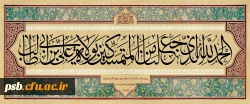 الحمد لله الذی جعلنا من المتمسکین بولایة علی بن ابی طالب
psb.cfu.ac.ir